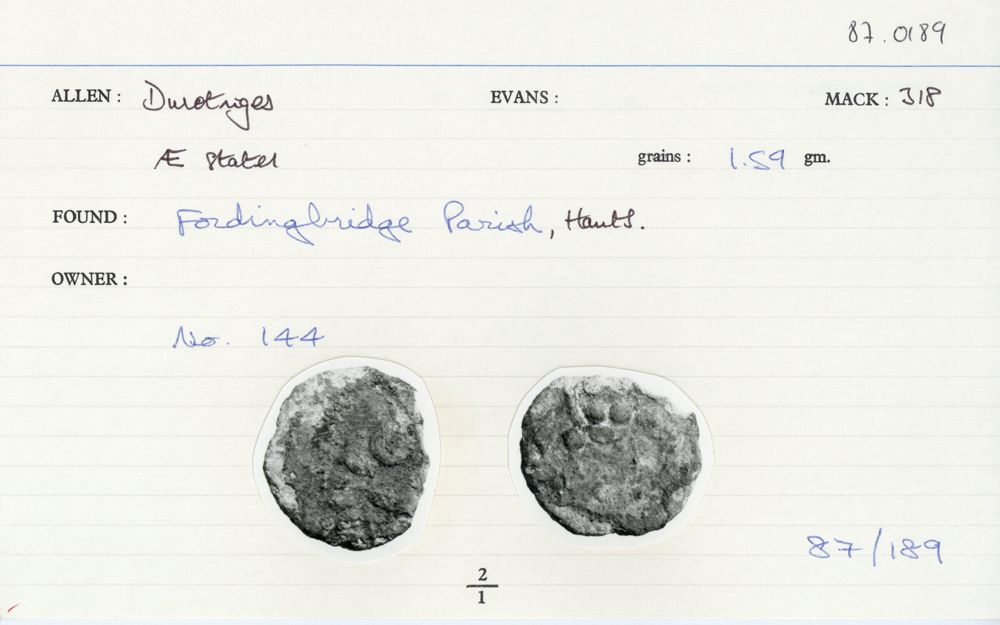 87.0189
ALLEN : Durotriges EVANS : MACK : 318
Æ stater grains : 1.59 gm.
FOUND : Fordingbridge Parish, Hants.
OWNER :
No. 144
87/189
2
1